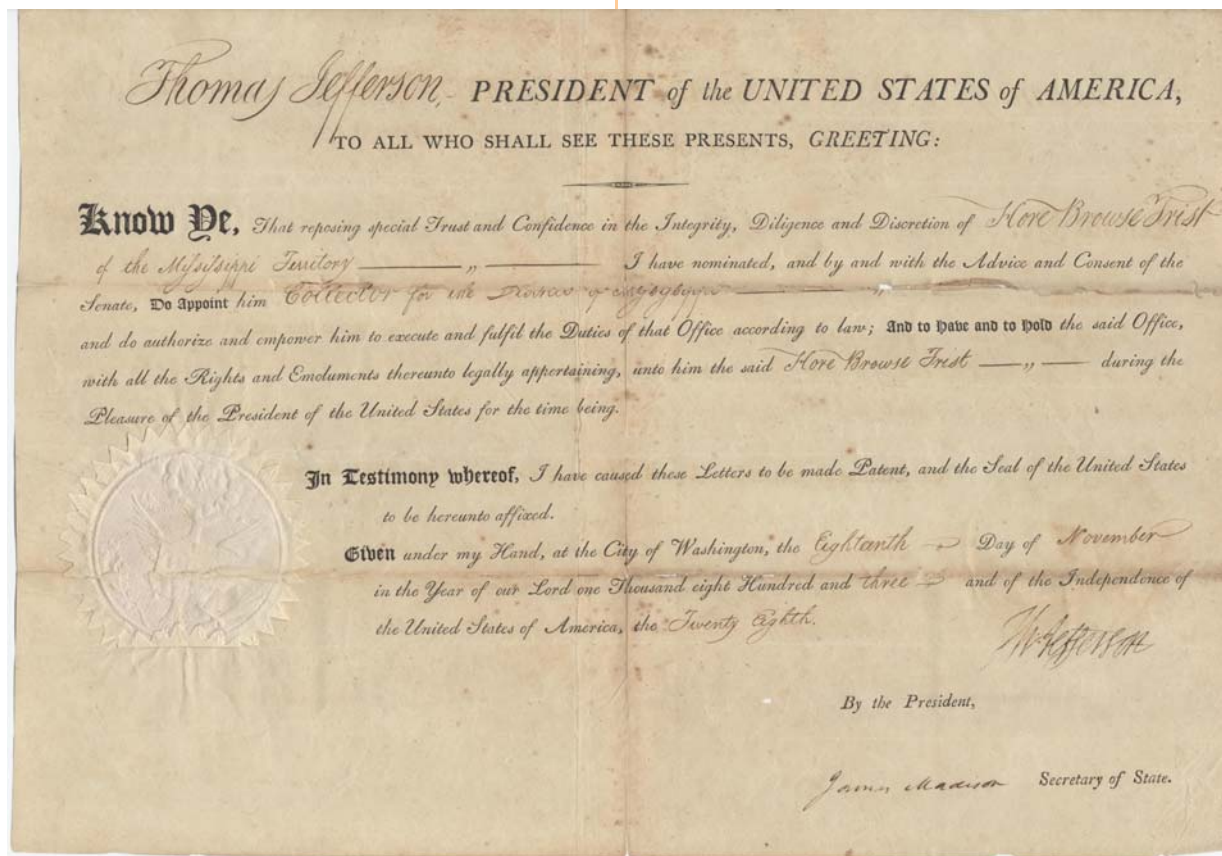 Thomas Jefferson, PRESIDENT of the UNITED STATES of AMERICA,
TO ALL WHO SHALL SEE THESE PRESENTS, GREETING:
Know Ye, That reposing special Trust and Confidence in the Integrity, Diligence and Discretion of Hore Browse Trist
of the Mississippi Territory ——— „ ——— I have nominated, and by and with the Advice and Consent of the
Senate, Do Appoint him Collector for the
and do authorize and empower him to execute and fulfil the Duties of that Office according to law; And to Have and to Hold the said Office,
with all the Rights and Emoluments thereunto legally appertaining, unto him the said Hore Browse Trist — „ — during the
Pleasure of the President of the United States for the time being.
In Testimony whereof, I have caused these Letters to be made Patent, and the Seal of the United States
to be hereunto affixed.
Given under my Hand, at the City of Washington, the Eighteenth Day of November
in the Year of our Lord one Thousand eight Hundred and three and of the Independence of
the United States of America, the Twenty Eighth.
Th. Jefferson
By the President,
James Madison Secretary of State.